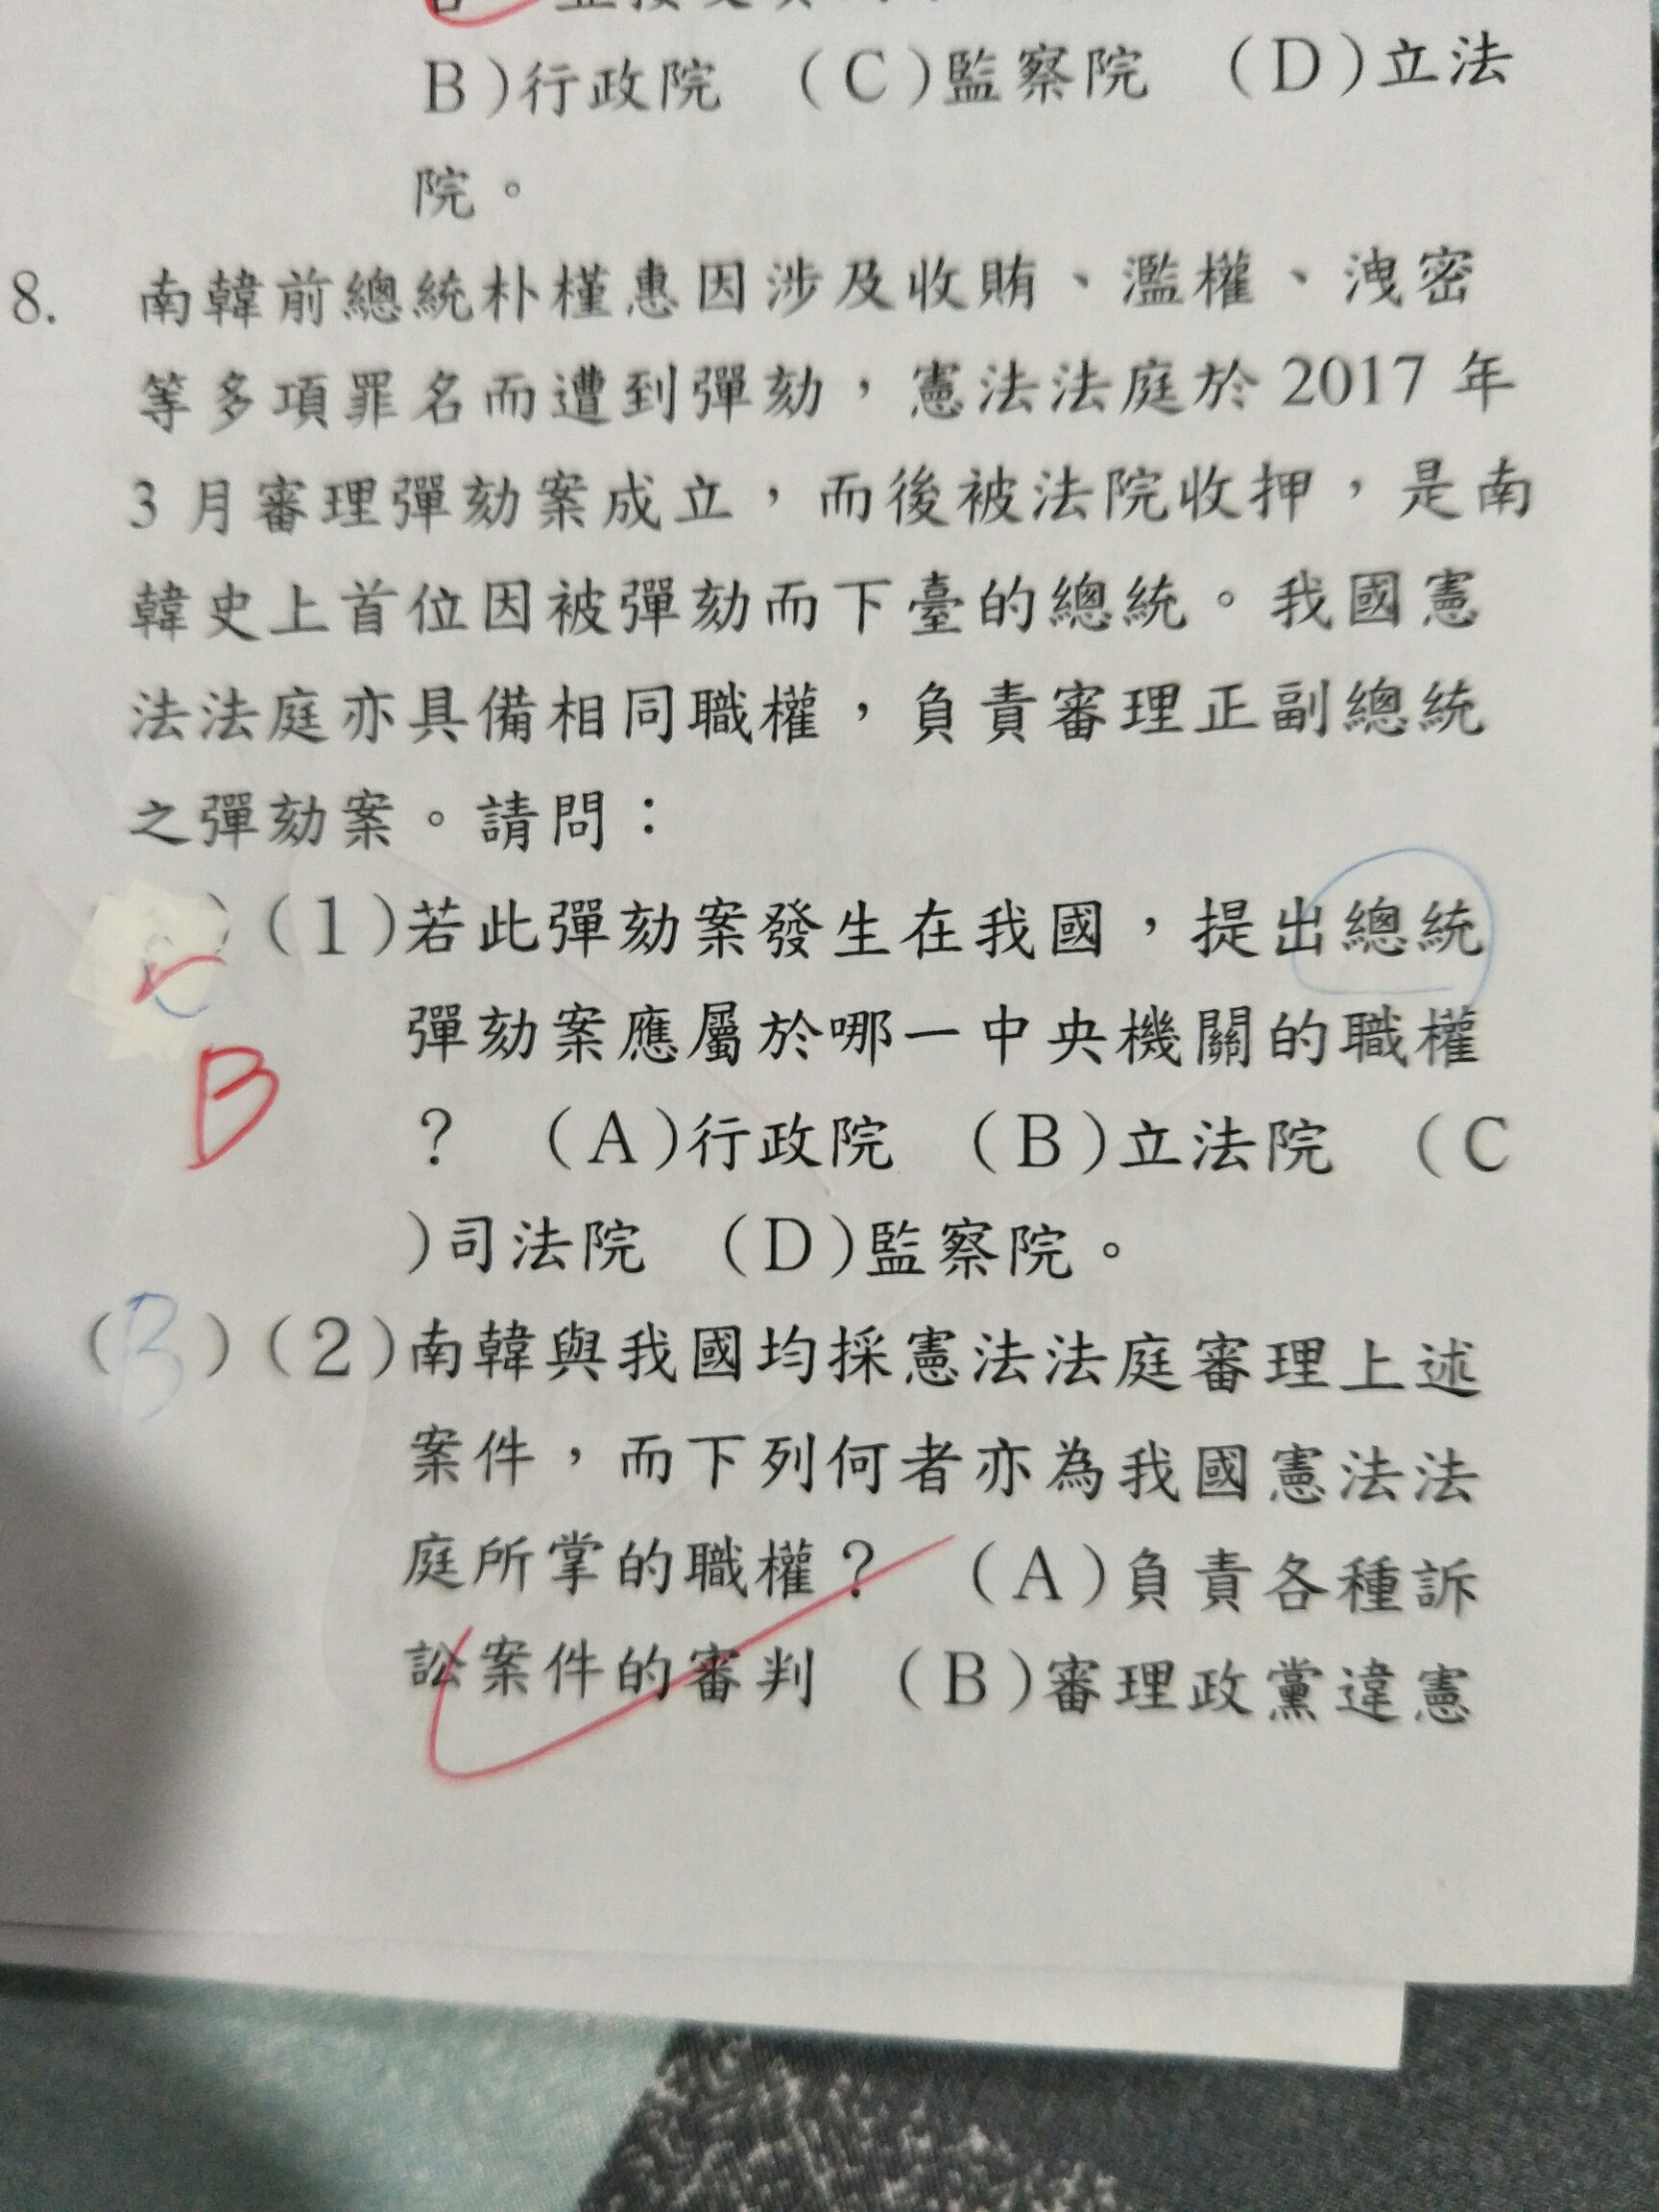 B)行政院 (C)監察院 (D)立法
院。
8. 南韓前總統朴槿惠因涉及收賄、濫權、洩密
等多項罪名而遭到彈劾，憲法法庭於2017年
3月審理彈劾案成立，而後被法院收押，是南
韓史上首位因被彈劾而下臺的總統。我國憲
法法庭亦具備相同職權，負責審理正副總統
之彈劾案。請問：
)(1)若此彈劾案發生在我國，提出總統
彈劾案應屬於哪一中央機關的職權
B
？ (A)行政院 (B)立法院 (C
)司法院 (D)監察院。
(B)(2)南韓與我國均採憲法法庭審理上述
案件，而下列何者亦為我國憲法法
庭所掌的職權？ (A)負責各種訴
訟案件的審判 (B)審理政黨違憲